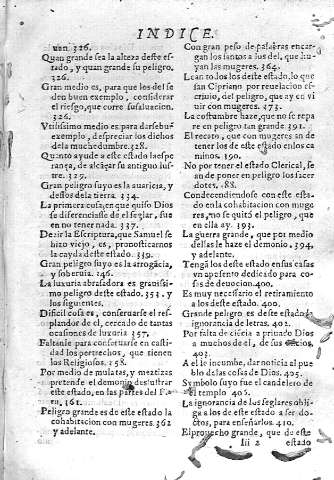 INDICE.
uen. 326.
Quan grande sea la alteza deste es-
tado, y quan grande su peligro,
326.
Gran medio es, para que los del se
den buen exemplo, considerar
el riesgo, que corre su saluacion.
326.
Vtilissimo medio es, para dar se buē
exemplo, despreciar los dichos
de la muchedumbre. 328.
Quanto ayude a este estado la espe
rança, de alcāçar su antiguo lus-
tre. 329.
Gran peligro suyo es la auaricia, y
desseos de la tierra. 334.
La primera cosa, en que quiso Dios
se diferenciasse del seglar, fue
en no tener nada. 337.
Dezir la Escriptura, que Samuel se
hizo viejo, es, pronosticarnos
la cayda deste estado. 339.
Gran peligro suyo es la arrogācia,
y soberuia. 346.
La luxuria abrasadora es grauissi-
mo peligro deste estado. 353. y
los siguientes.
Dificil cosa es, conseruarse el res-
plandor de el, cercado de tantas
ocasiones de luxuria. 357.
Faltanle para conseruarse en casti-
dad los pertrechos, que tienen
los Religiosos. 358.
Por medio de mulatas, y mestizas
pretende el demonio deslustrar
este estado, en las partes del
361.
Peligro grande es de este estado la
cohabitacion con mugeres. 362
y adelante.
Con gran peso de palabras encar-
gan los santos a los del, que hu-
yan las mugeres. 364.
Lean todos los deste estado, lo que
san Cipriano por reuelacion es-
criuio, del peligro, que ay en vi
uir con mugeres. 373.
La costumbre haze, que no se repa
re en peligro tan grande. 391.
El recato, que con mugeres an de
tener los de este estado en los ca
minos. 390.
No por tener el estado Clerical, se
an de poner en peligro los sacer
dotes. 88.
Condecendiendose con este esta-
do en la cohabitacion con muge
res, no se quitò el peligro, que
en ella ay. 393.
La guerra grande, que por medio
dellas le haze el demonio. 394,
y adelante.
Tengā los deste estado en sus casas
vn aposento dedicado para co-
sas de deuocion. 400.
Es muy necessario el retiramiento
a los deste estado. 400.
Grande peligro es deste estado la
ignorancia de letras. 402.
Por falta de ciēcia a priuado Dios
a muchos de el, de sus
403.
A el le incumbe, dar noticia al pue
blo de las cosas de Dios. 405.
Symbolo suyo fue el candelero de
el templo 405.
La ignorancia de los seglares obli-
ga a los de este estado a ser doc-
tos, para enseñarlos. 410.
El prouecho grande, que de este
Iii 2 estado